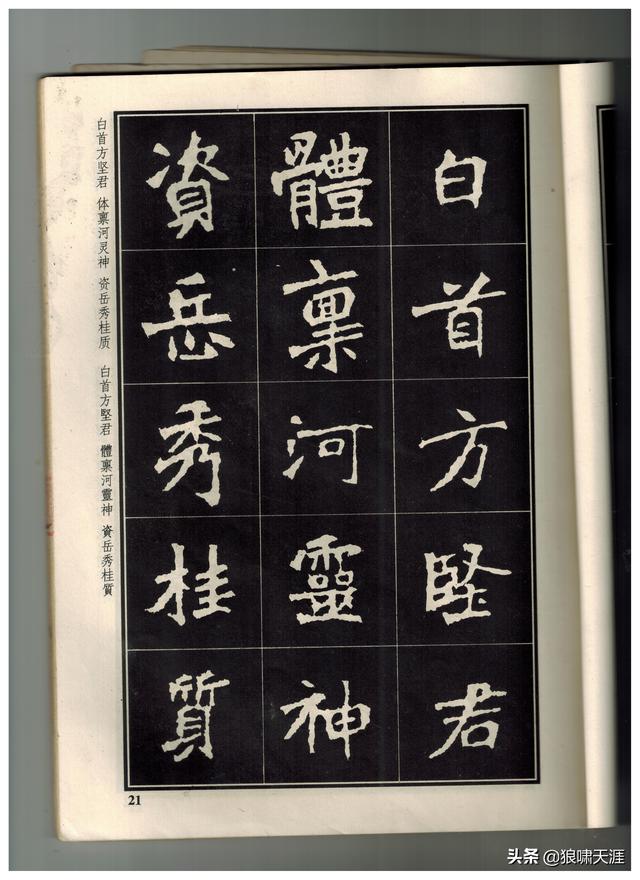 白首方堅君
體禀河靈神
資岳秀桂質
白首方坚君 体禀河灵神 资岳秀桂质 白首方堅君 體禀河靈神 資岳秀桂質
21
头条 @狼啸天涯